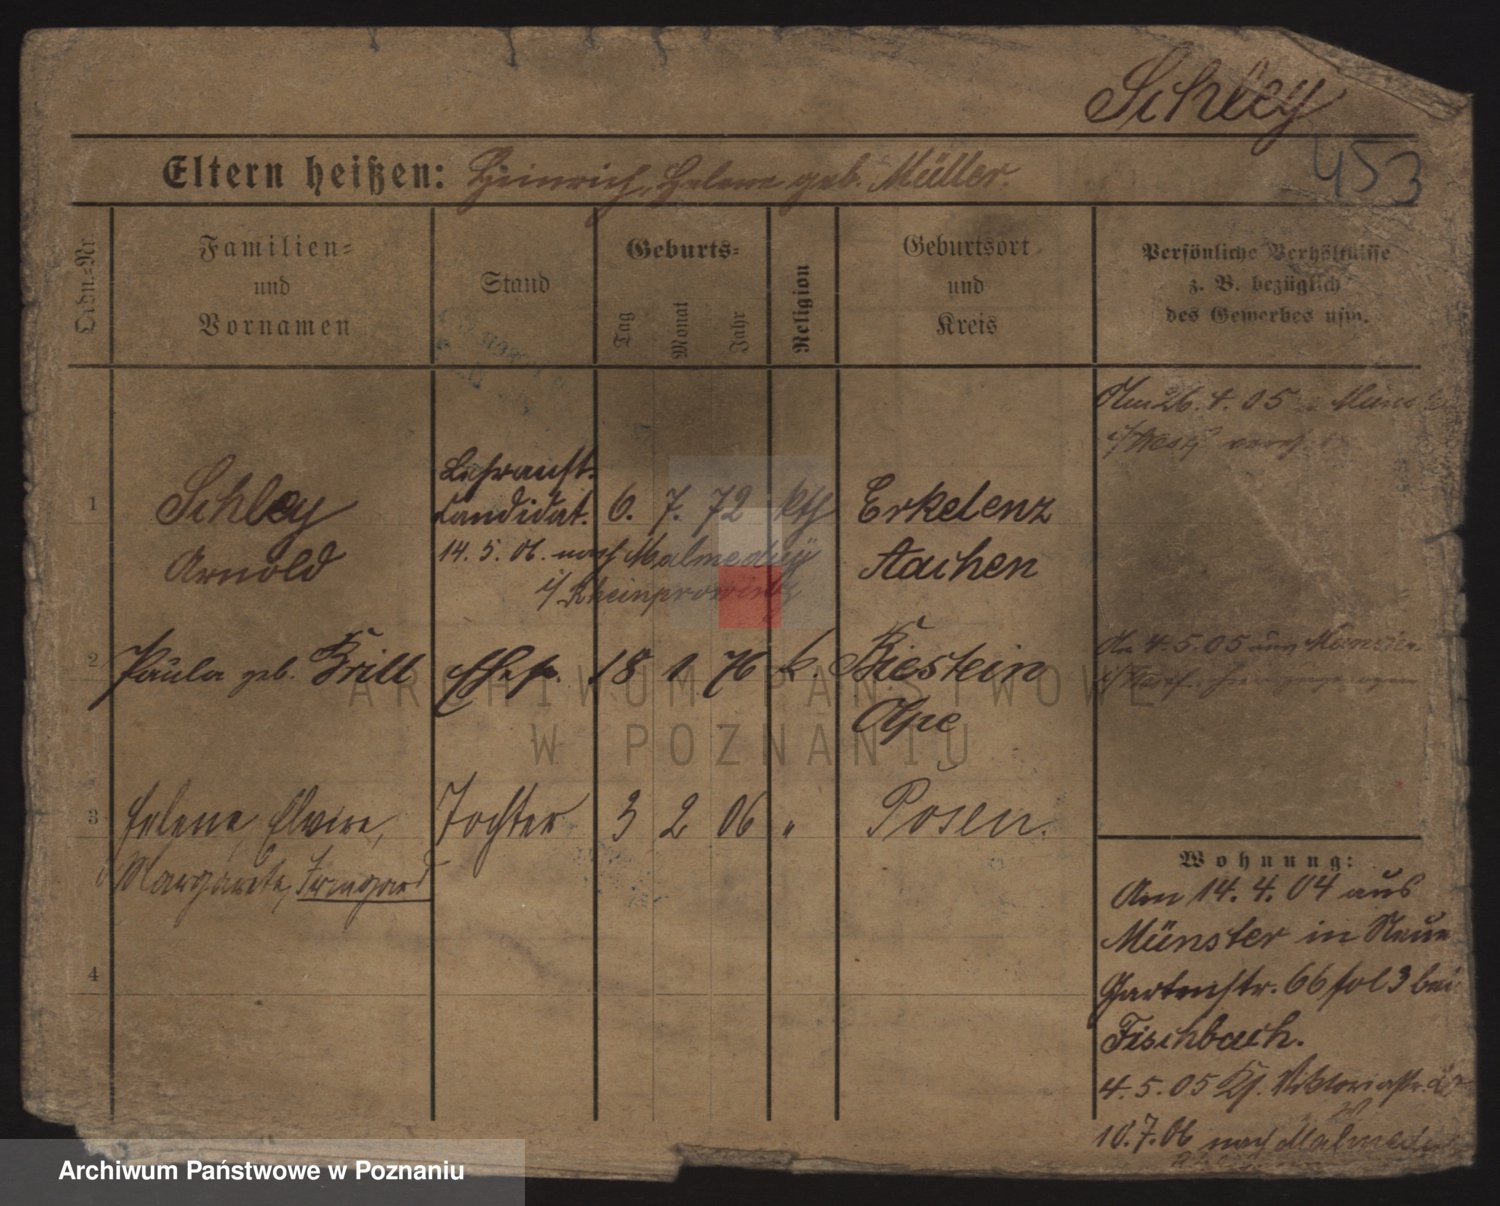 Schley
453
Eltern heißen: Heinrich, Helene geb. Müller.
Ordn.-Nr.
Familien- und Vornamen
Stand
Geburts-
Tag
Monat
Jahr
Religion
Geburtsort und Kreis
Persönliche Verhältnisse
z. B. bezüglich
des Gewerbes usw.
Am 26. 4. 05
1 Schley Lehramts. Candidat. 6. 7. 72 kth Erkelenz
Arnold 14. 5. 06. nach Malmedy Aachen
i/ Rheinprovinz
2 Paula geb. Brill Ehefr. 18 1 76 k. Biestein
Olpe
4. 5. 05 aus Münster
3 Helene, Elvire, Tochter 3 2 06 " Posen.
Margarete, Irmgard
4
Wohnung:
Am 14. 4. 04 aus
Münster in Neue
Gartenstr. 66 fol 3 bei
Fischbach.
4. 5. 05 Viktoriastr.
10. 7. 06 nach Malmedy
ARCHIWUM PAŃSTWOWE
W POZNANIU
Archiwum Państwowe w Poznaniu